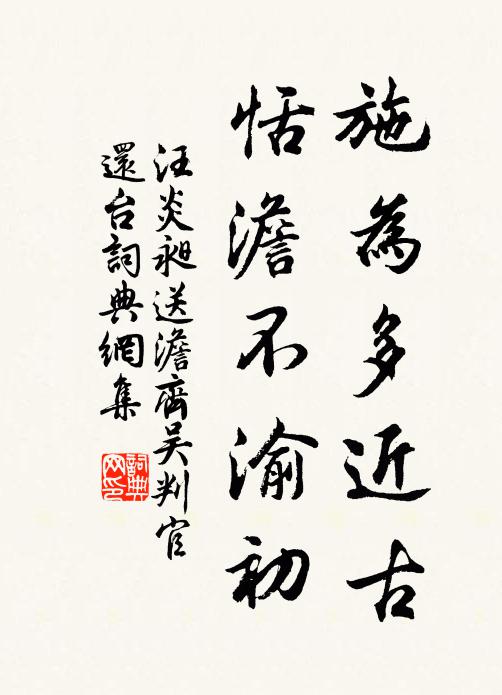 施為多近古
恬澹不渝初
汪炎昶送澹齋吴判官
還台詞典網集
詞典
网印